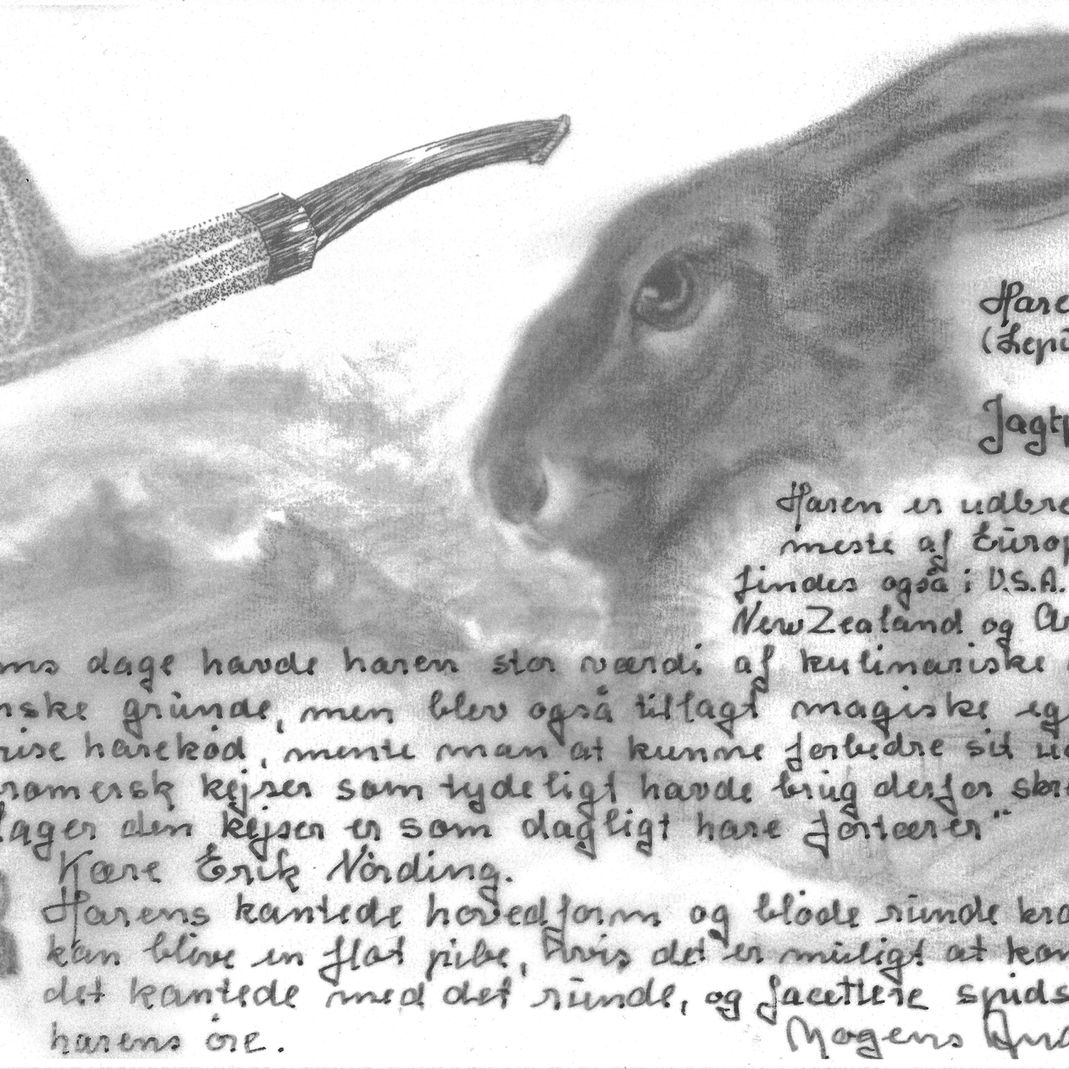 Hare
(Lepu
Jagtp
Haren er udbre
meste af Europ
findes også i U.S.A.
New Zealand og
ms dage havde haren stor værdi af kulinariske
nske grunde, men blev også tillagt magiske eg
rise harekød, mente man at kunne forbedre sit ud
romersk kejser som tydeligt havde brug derfor skre
lager den kejser er som dagligt hare fortærer"
Kære Erik Nørding.
Harens kantede hovedform og bløde runde kro
kan blive en flot pibe, hvis det er muligt at kom
det kantede med det runde, og facettere spids
harens øre.
Mogens And